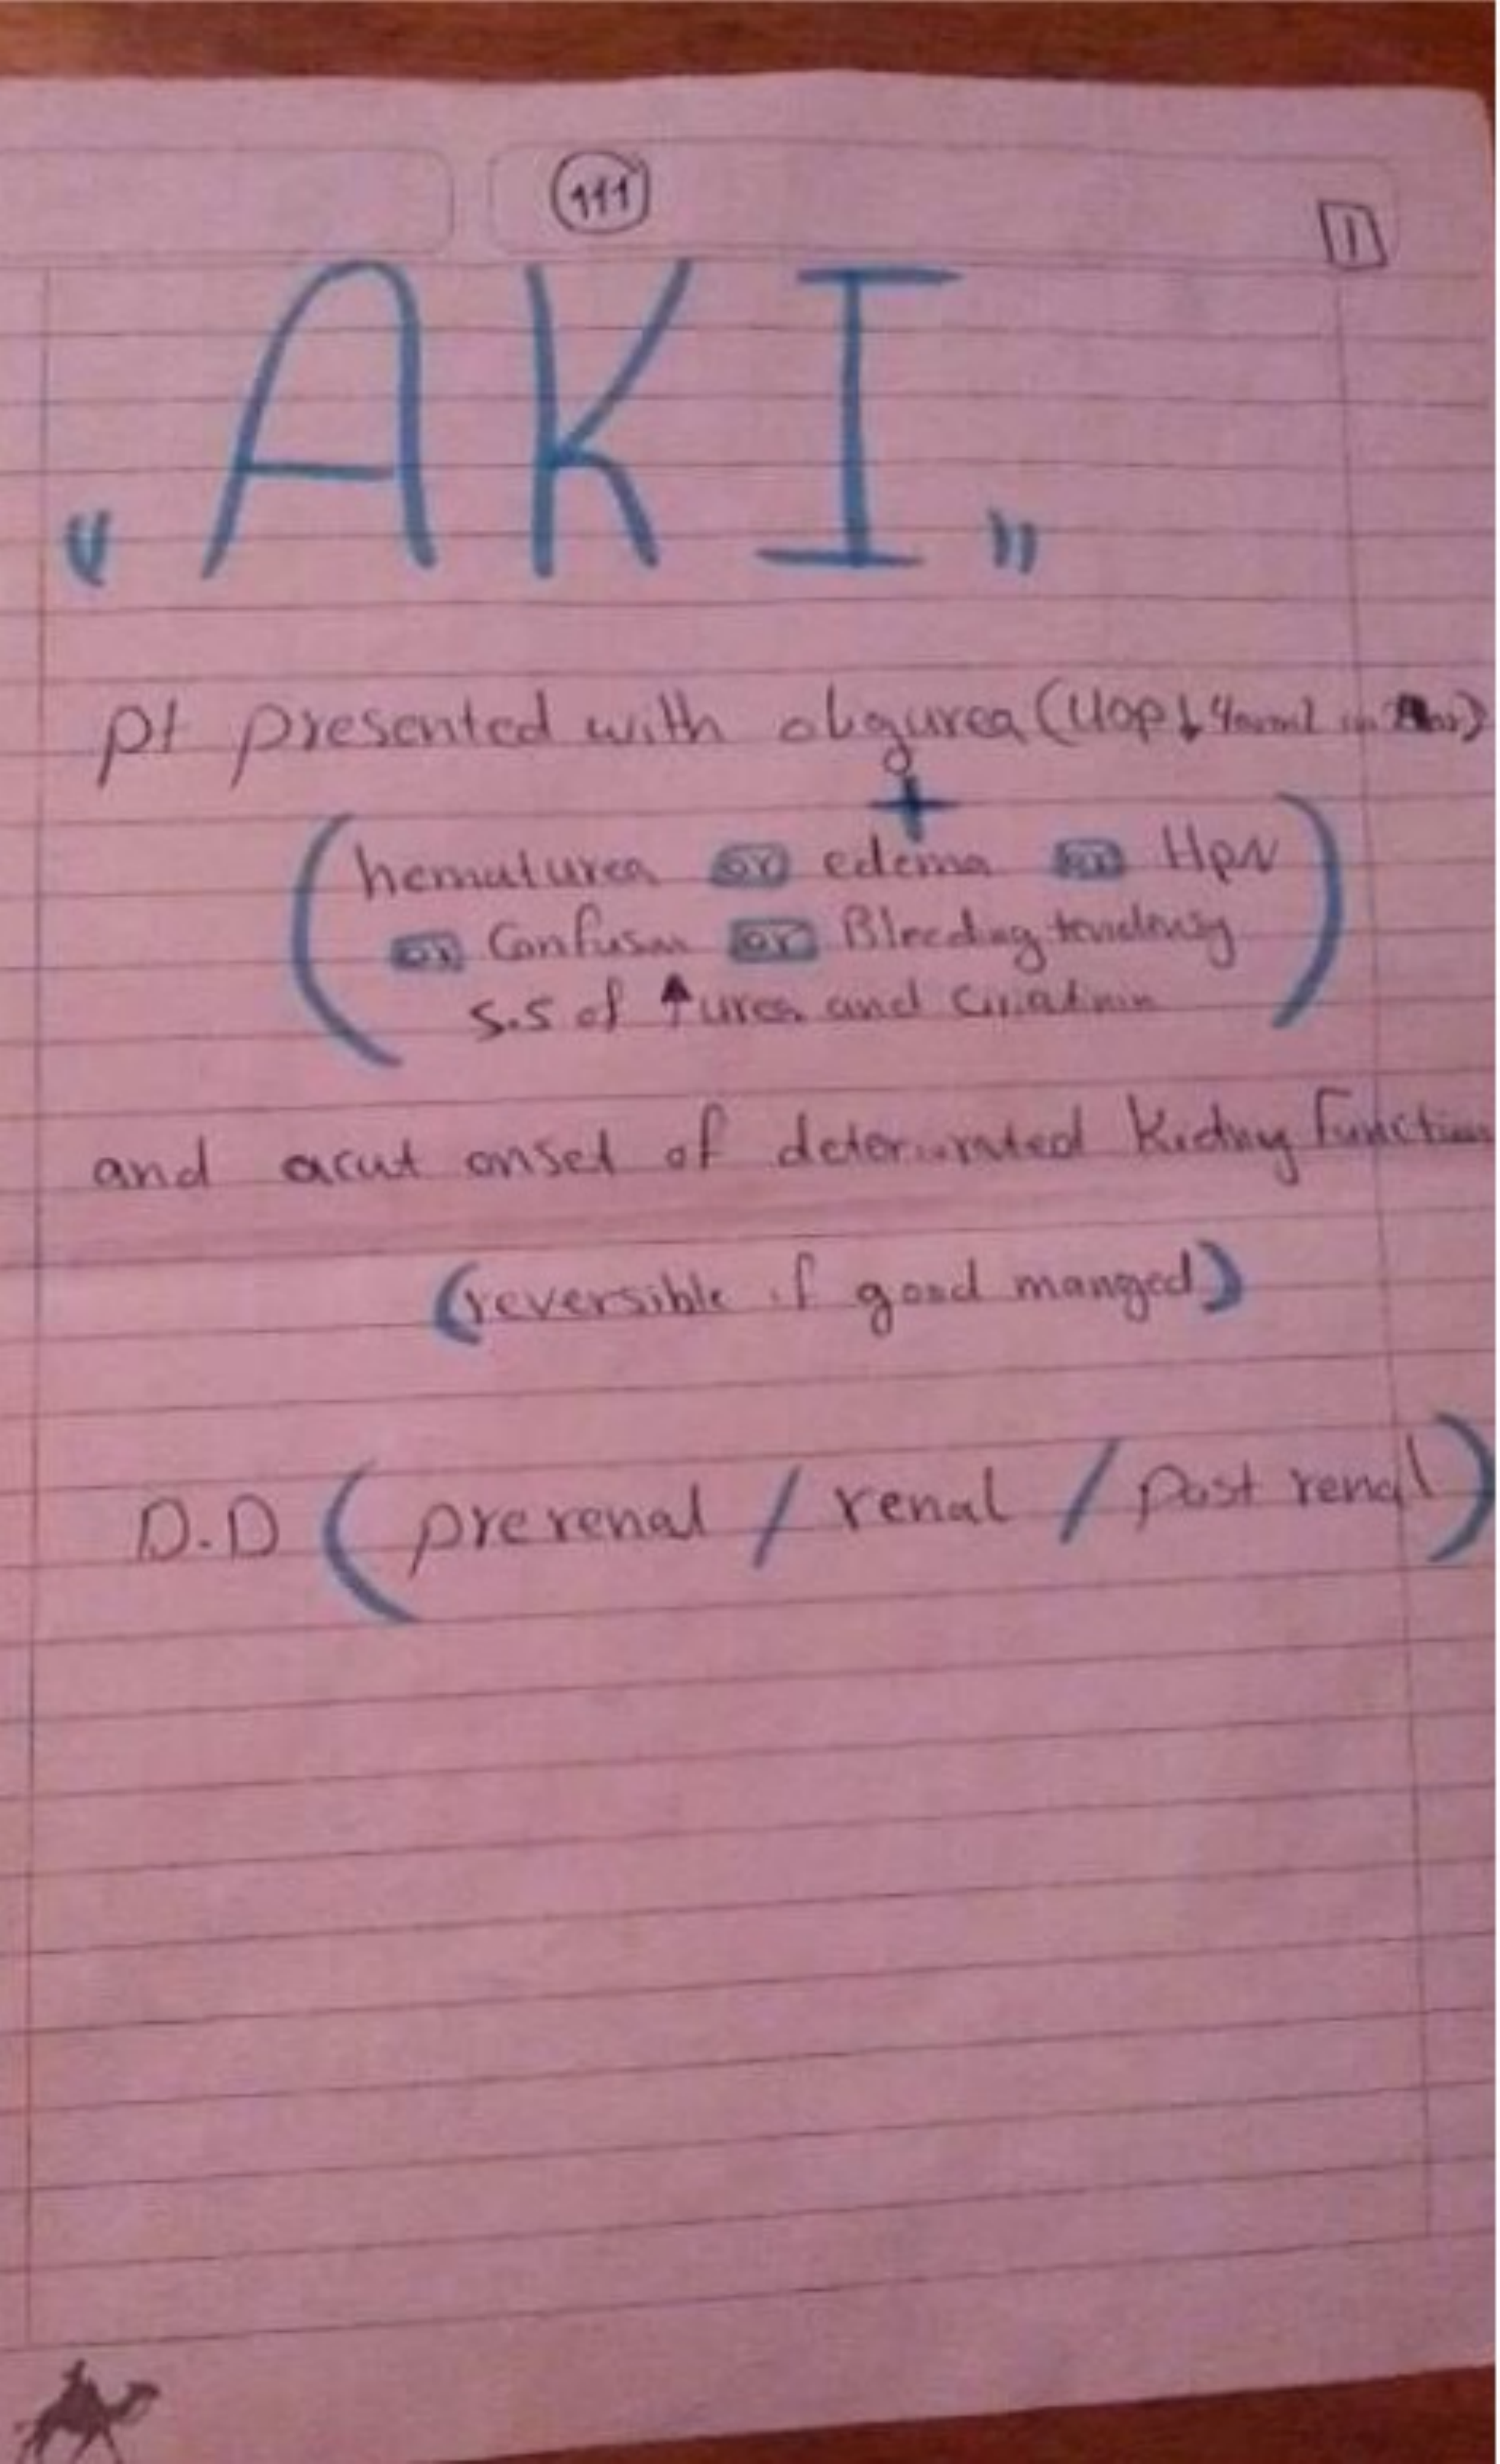 111
1
"AKI"
pt presented with oligurea (UOP↓ 400ml in
+
(hematurea or edema or HPN
or Confusion or Bleeding tendency
S.S of ↑ urea and Criatinin)
and acut onset of deteriorated Kidney Function
(reversible if good manged)
D.D (prerenal / renal / post renal)